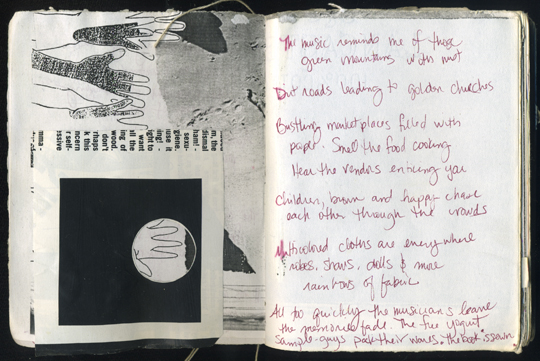 m, the
dismal
ham!
sexu-
giene.
use it
ing! -
ight to
want
ill the
ing of
wood.
don't
rhaps
k this
ncern
r self
ssive
mma-
The music reminds me of those
green mountains with mist
Dirt roads leading to golden churches
Bustling marketplaces filled with
Smell the food cooking
Hear the vendors enticing you
Children, brown and happy chase
each other through the crowds
Multicolored cloths are everywhere
robes, shawls, dolls & more
rainbows of fabric
All too quickly the musicians leave
the memories fade. The free yogurt
sample guys pack their wares. the